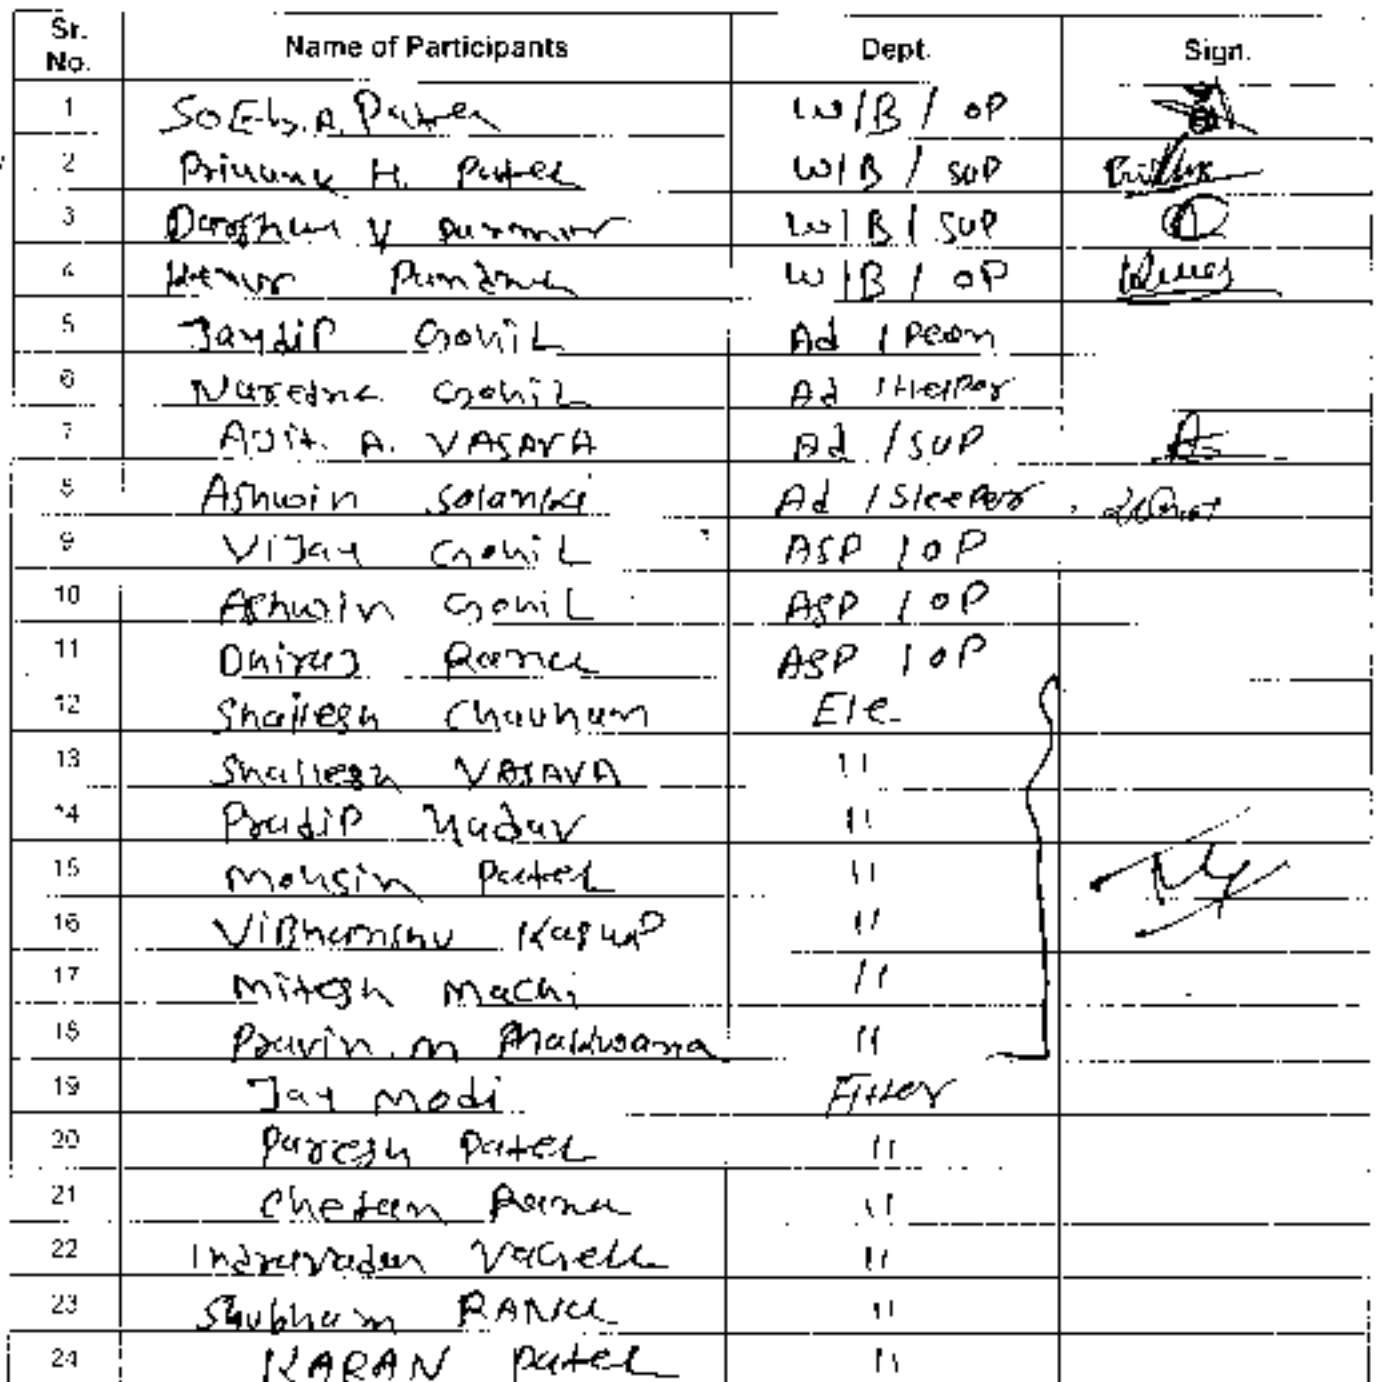 Sr. No. Name of Participants Dept. Sign.
1 SoEb. A. Patel W/B / OP
2 Priyank H. Patel W/B / SUP
3 Darshan V Parmar W/B / SUP
4 Pandya W/B / OP
5 Jaydip Gohil Ad / Peon
6 Naredra Gohil Ad / Helper
7 Ajit. A. VASAVA Ad / SUP
8 Ashwin Solanki Ad / Sleeper
9 Vijay Gohil ASP / OP
10 Ashwin Gohil ASP / OP
11 Dhiraj Rana ASP / OP
12 Shailesh Chauhan Ele.
13 Shailesh VASAVA 11
14 Pradip Yadav 11
15 Mohsin Patel 11
16 11
17 Mitesh Machi 11
18 Pravin. M Makwana 11
19 Jay Modi Fitter
20 Paresh Patel 11
21 Chetan Rana 11
22 Indravadan Vaghela 11
23 Shubham RANA 11
24 KARAN Patel 11